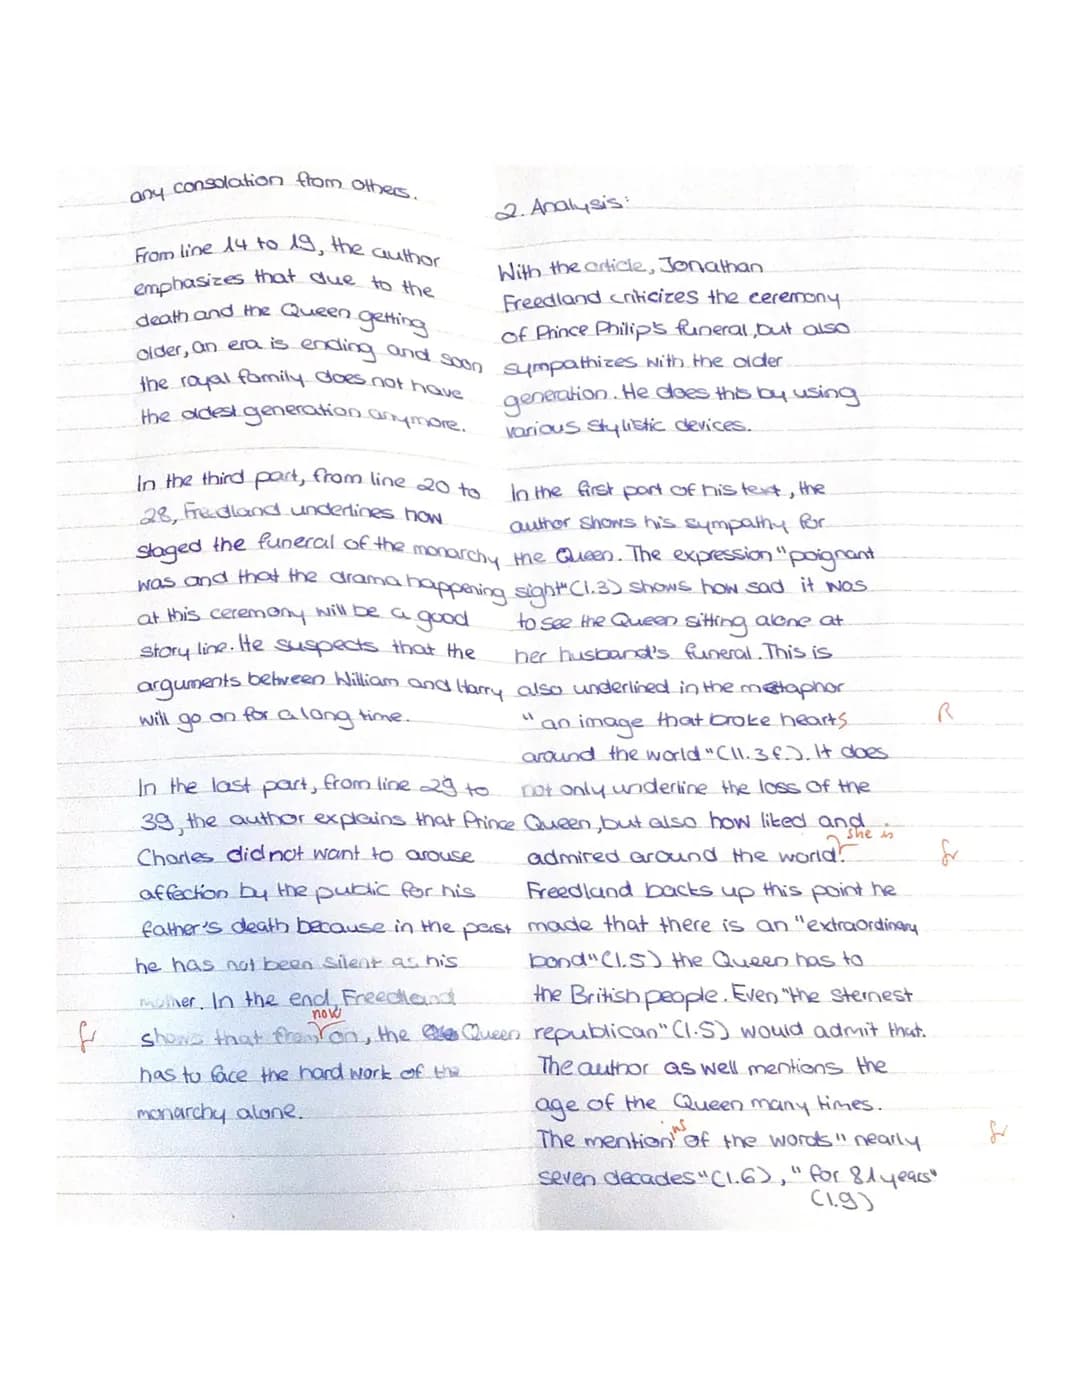 any consolation from others.
From line 14 to 19, the author
emphasizes that due to the
death and the Queen getting
older, an era is ending and soon
the royal family does not have
the oldest generation anymore.
In the third part, from line 20 to
28, Freedland underlines how
staged the funeral of the monarchy
was and that the drama happening
at this ceremony will be a good
story line. He suspects that the
arguments between William and Harry
will go on for a long time.
In the last part, from line 29 to
39, the author explains that Prince
Charles did not want to arouse
affection by the public for his
father's death because in the past
he has not been silent as his
mother. In the end, Freedland
now
shows that from on, the Queen
has to face the hard work of the
monarchy alone.
2. Analysis:
With the article, Jonathan
Freedland criticizes the ceremony
of Prince Philip's funeral, but also
sympathizes with the older
generation. He does this by using
various stylistic devices.
In the first part of his text, the
author shows his sympathy for
the Queen. The expression "poignant
sight" (l.3) shows how sad it was
to see the Queen sitting alone at
her husband's funeral. This is
also underlined in the metaphor
"an image that broke hearts R
around the world" (ll. 3 f.). It does
not only underline the loss of the
Queen, but also how liked and
she is
admired around the world.
Freedland backs up this point he
made that there is an "extraordinary
bond" (l.5) the Queen has to
the British people. Even "the sternest
republican" (l.5) would admit that.
The author as well mentions the
age of the Queen many times.
The mention ing of the words "nearly
seven decades" (l.6), "for 81 years"
(l.9)